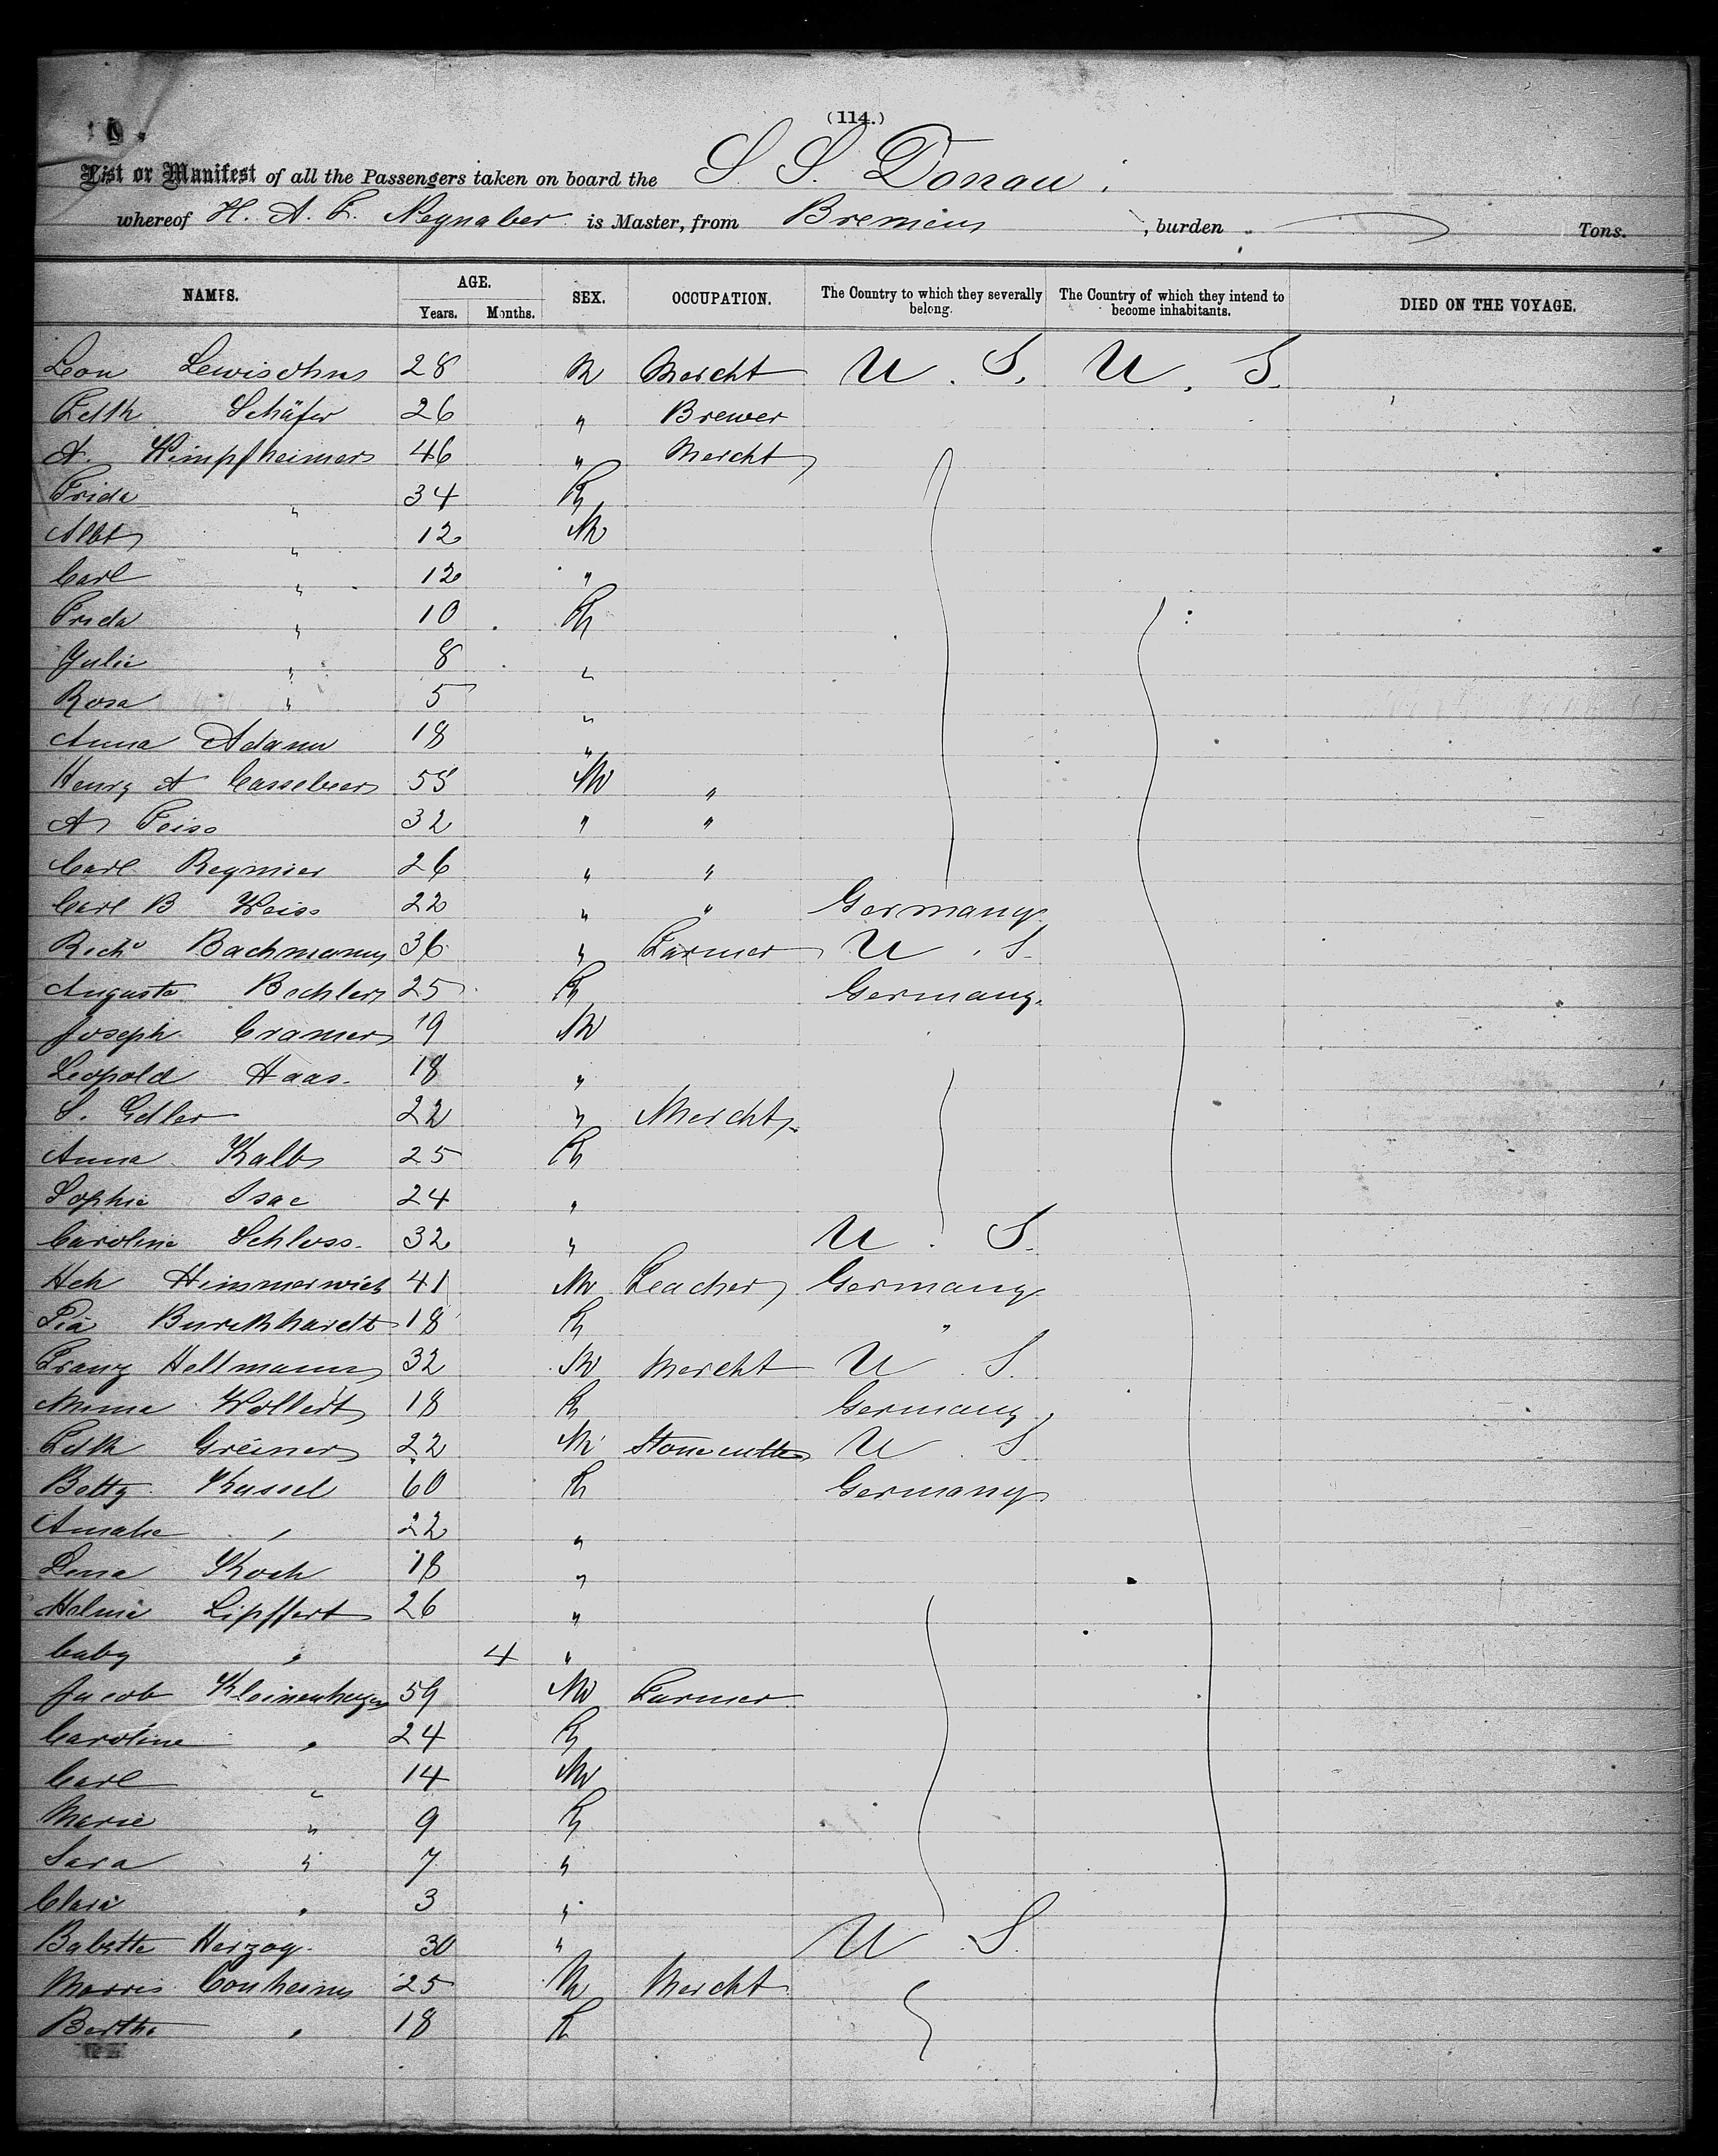 (114.)
List or Manifest of all the Passengers taken on board the S. S. Donau.
whereof H. A. F. Neynaber is Master, from Bremen, burden Tons.
NAMES. AGE. Years. Months. SEX. OCCUPATION. The Country to which they severally belong. The Country of which they intend to become inhabitants. DIED ON THE VOYAGE.
Leon Lewisohn 28 M Mercht U. S. U. S.
Schäfer 26 " Brewer
A. Wimpfheimer 46 " Mercht
Frida " 34 F
Albt " 12 M
Carl " 12 "
Frida " 10 F
Julie " 8 "
Rosa " 5 "
Anna Adam 18 "
Henry A Casselbeer 55 M "
A Feiss 32 " "
Carl Regnier 26 " "
Carl B Weiss 22 " " Germany
Richd Bachmann 36 " Farmer U. S.
Auguste Bechler 25 F Germany.
Joseph Cramer 19 M
Leopold Haas. 18 "
S. Edler 22 " Mercht.
Anna Kalb 25 F
Sophie Isac 24 "
Caroline Schloss. 32 " U. S.
Hch 41 M Teacher Germany
Pia Burckhardt 18 F "
Franz Hellmann 32 M Mercht U. S.
Minna 18 F Germany
Greiner 22 M Stonecutter U S
Betty Kussel 60 F Germany
Amalie " 22 "
Lena Koch 18 "
Lipffert 26 "
baby " 4 "
Jacob 59 M Farmer
Caroline " 24 F
Carl " 14 M
Marie " 9 F
Sara " 7 "
Clara " 3 "
Babette Herzog. 30 " U. S.
Morris Conheim 25 M Mercht
Bertha " 18 F